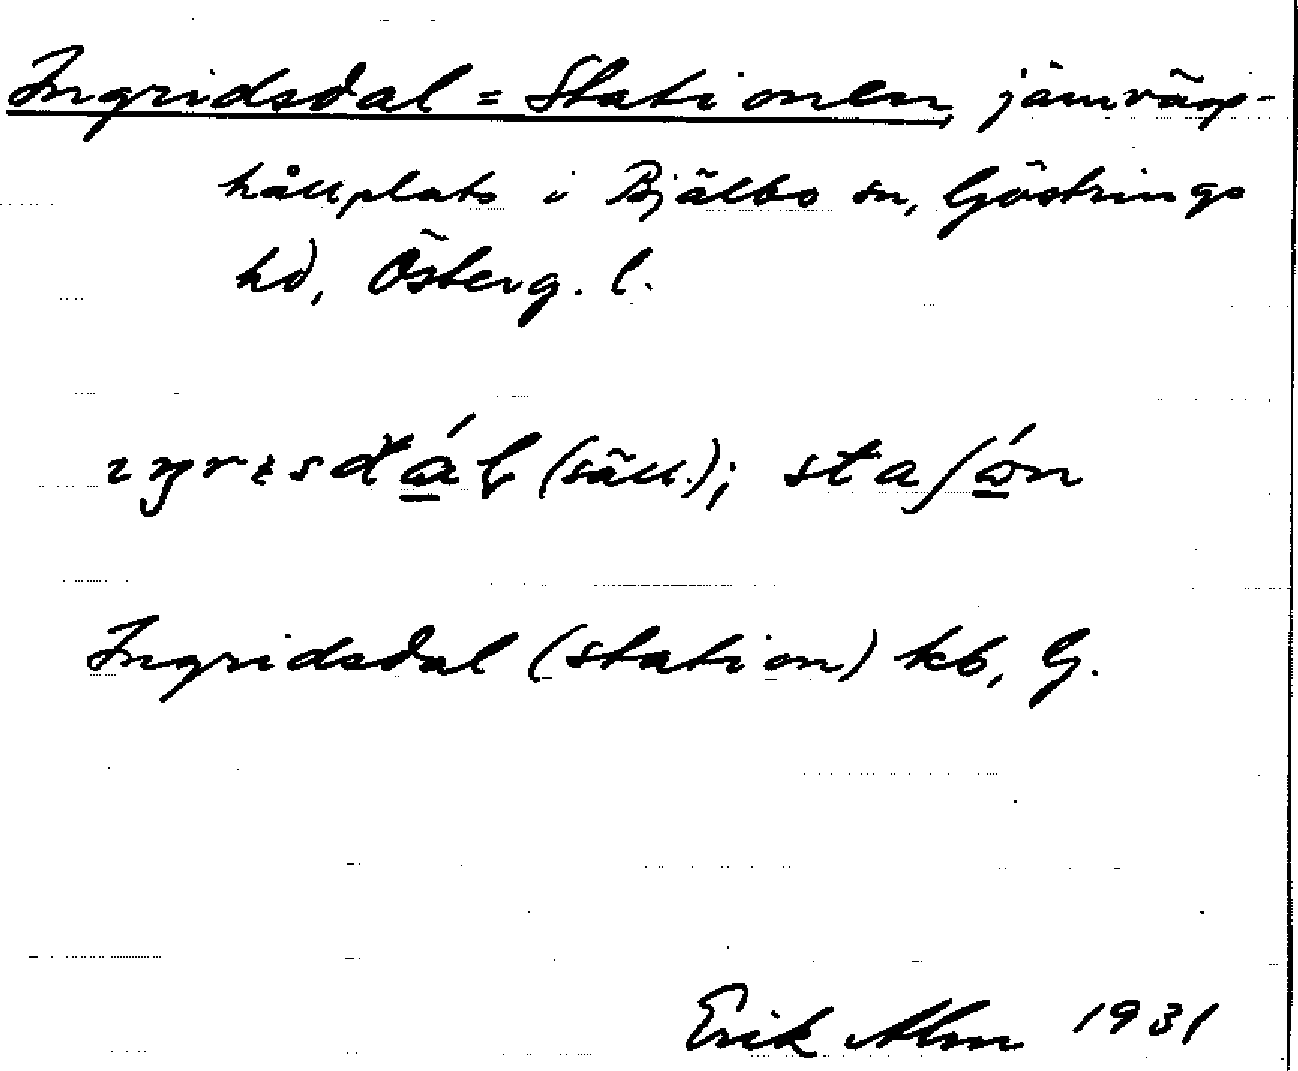 Ingridsdal = Stationen, järnvägs-
hållplats i Bjälbo sn, Göstrings
hd, Österg. l.
(säll.);
Ingridsdal (station) kb, G.
Erik Alm 1931